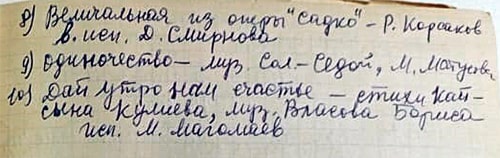 8) Величальная из оперы "Садко" - Р. Корсаков
в. исп. Д. Смирнова
9) Одиночество - муз. Сол.-Седой, М. Матусовс
10) Дай утро нам счастье - стихи Кай-
сына Кулиева, муз. Власова Бориса
исп. М. Магомаев